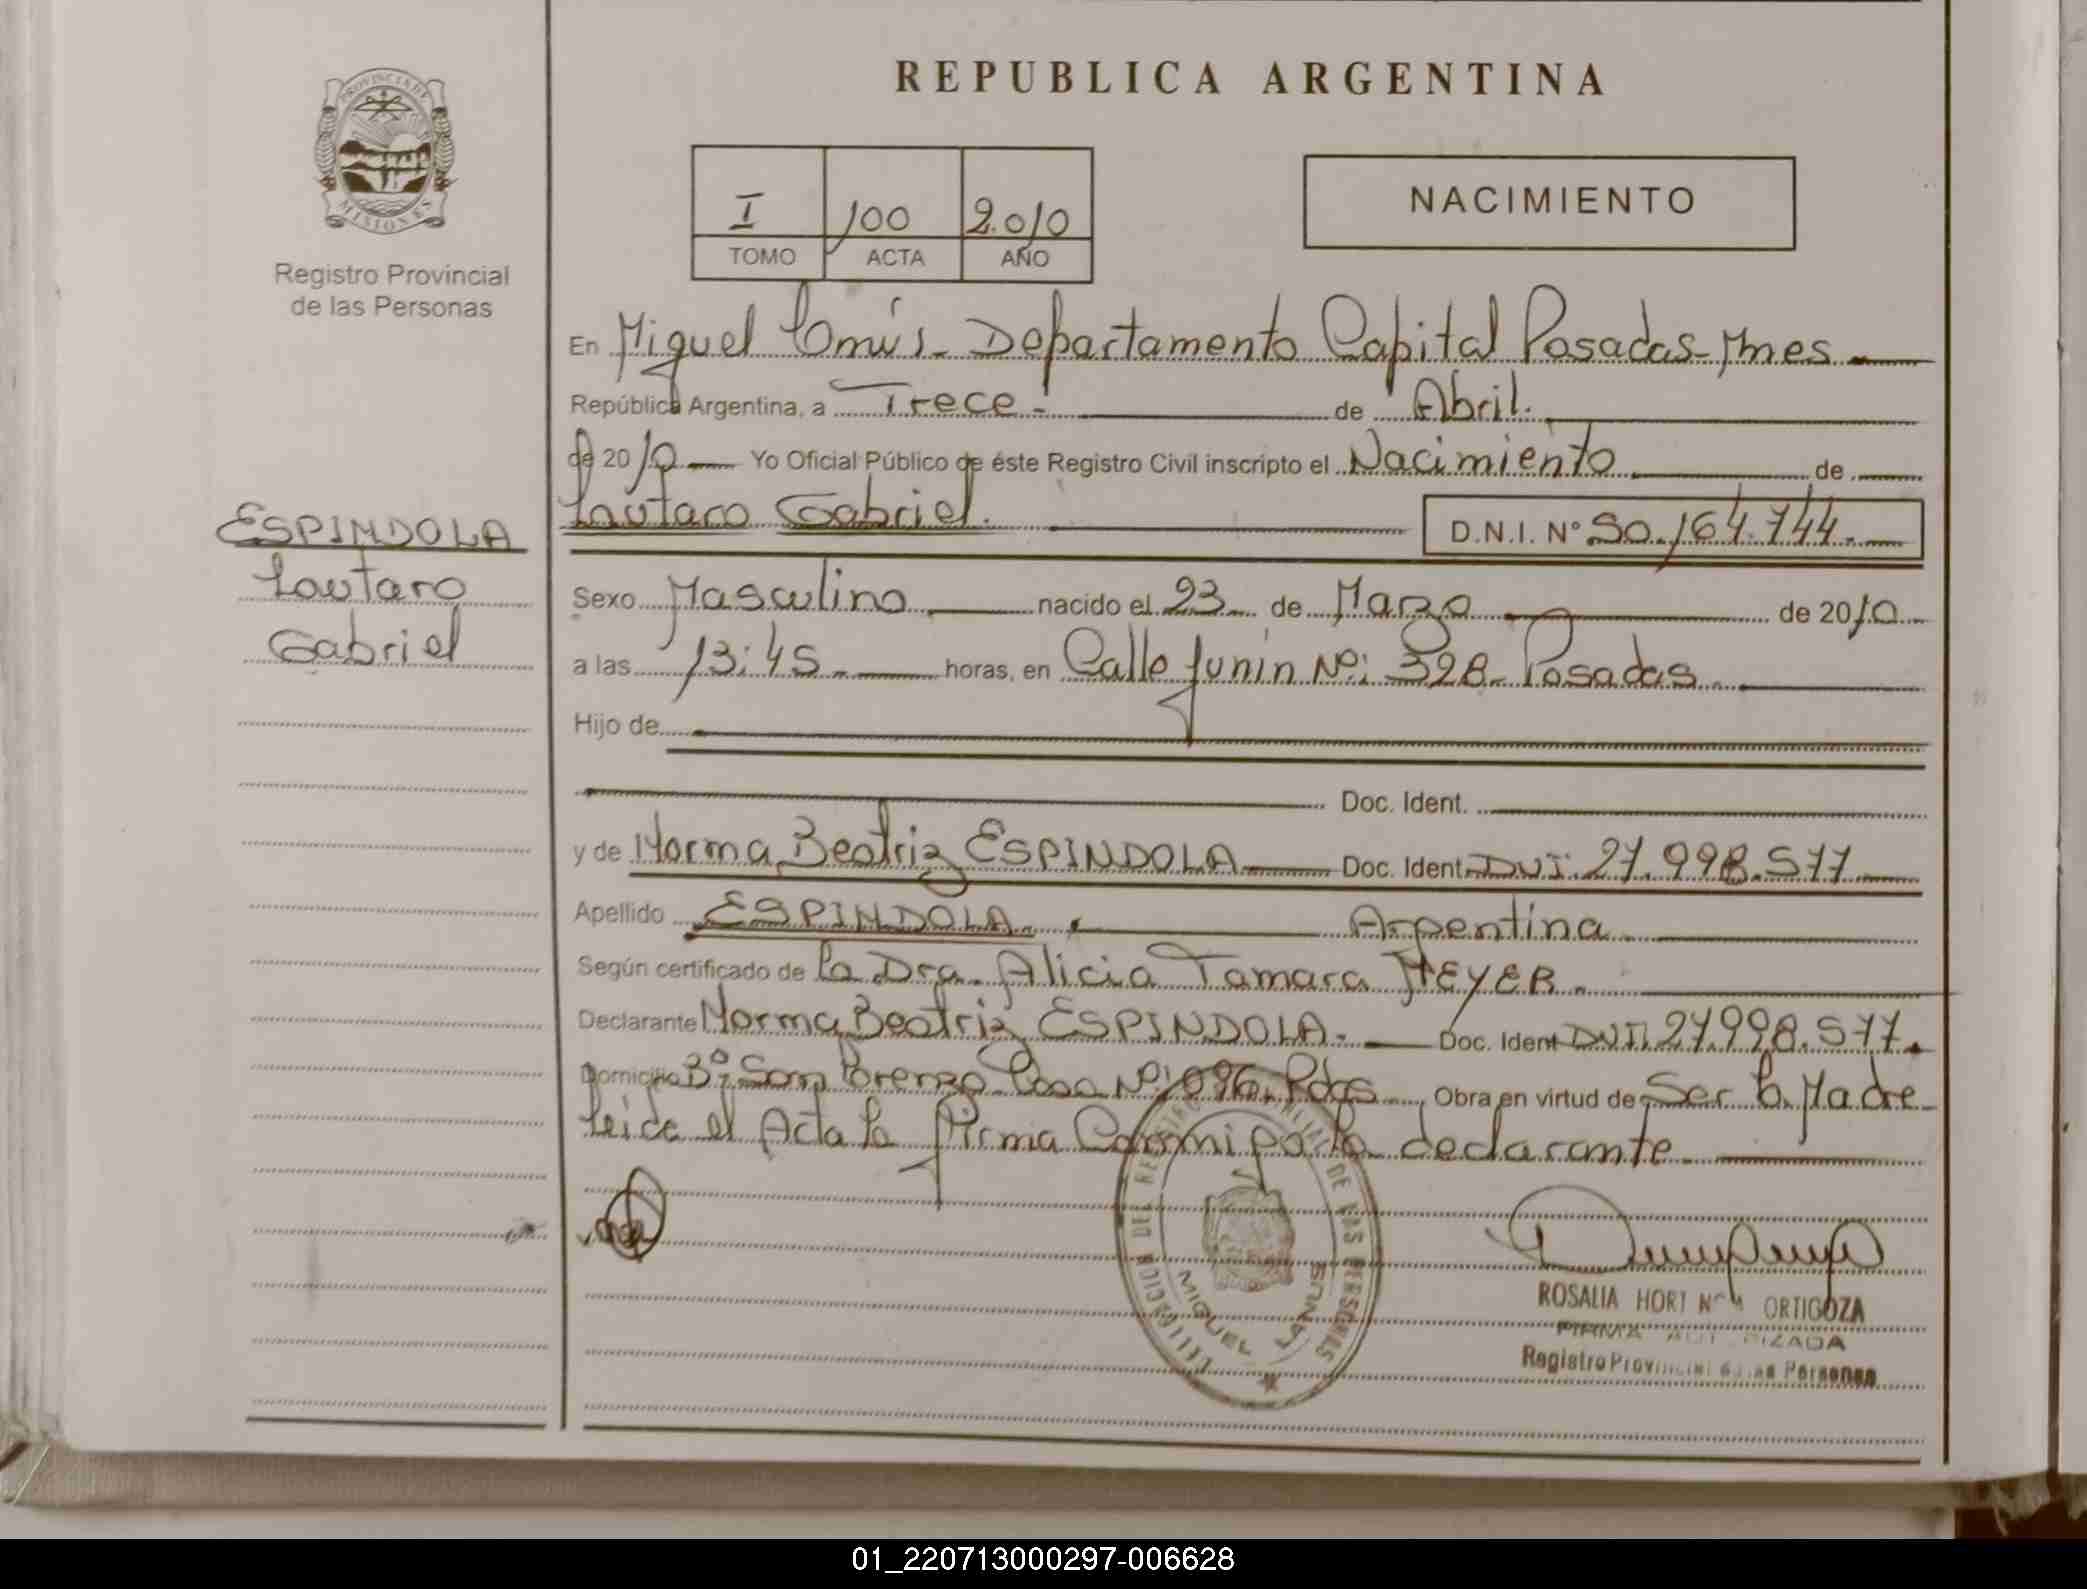 REPUBLICA ARGENTINA
PROVINCIA DE
MISIONES
Registro Provincial
de las Personas
I 100 2.010
TOMO ACTA AÑO
NACIMIENTO
En Miguel Lanús - Departamento Capital Posadas - Mnes
República Argentina, a Trece.- de Abril.
de 2010 Yo Oficial Público de éste Registro Civil inscripto el Nacimiento de
Lautaro Gabriel. D.N.I. Nº 50.164.744.
ESPINDOLA
Lautaro
Gabriel
Sexo Masculino nacido el 23 de Marzo de 2010
a las 13:45 horas, en Calle Junín Nº: 328 - Posadas.
Hijo de
Doc. Ident.
y de Norma Beatriz ESPINDOLA Doc. Ident. DNI: 27.998.577
Apellido ESPINDOLA Argentina
Según certificado de la Dra. Alicia Tamara MEYER.
Declarante Norma Beatriz ESPINDOLA. Doc. Ident DNI. 27.998.577.
Domicilio Bº San Lorenzo Casa Nº: 096. Pdas Obra en virtud de Ser la Madre
leida el Acta la firma Conmigo la declarante
MIGUEL LANUS
ROSALIA ORTIGOZA
Registro Provincial de las Personas
01_220713000297-006628